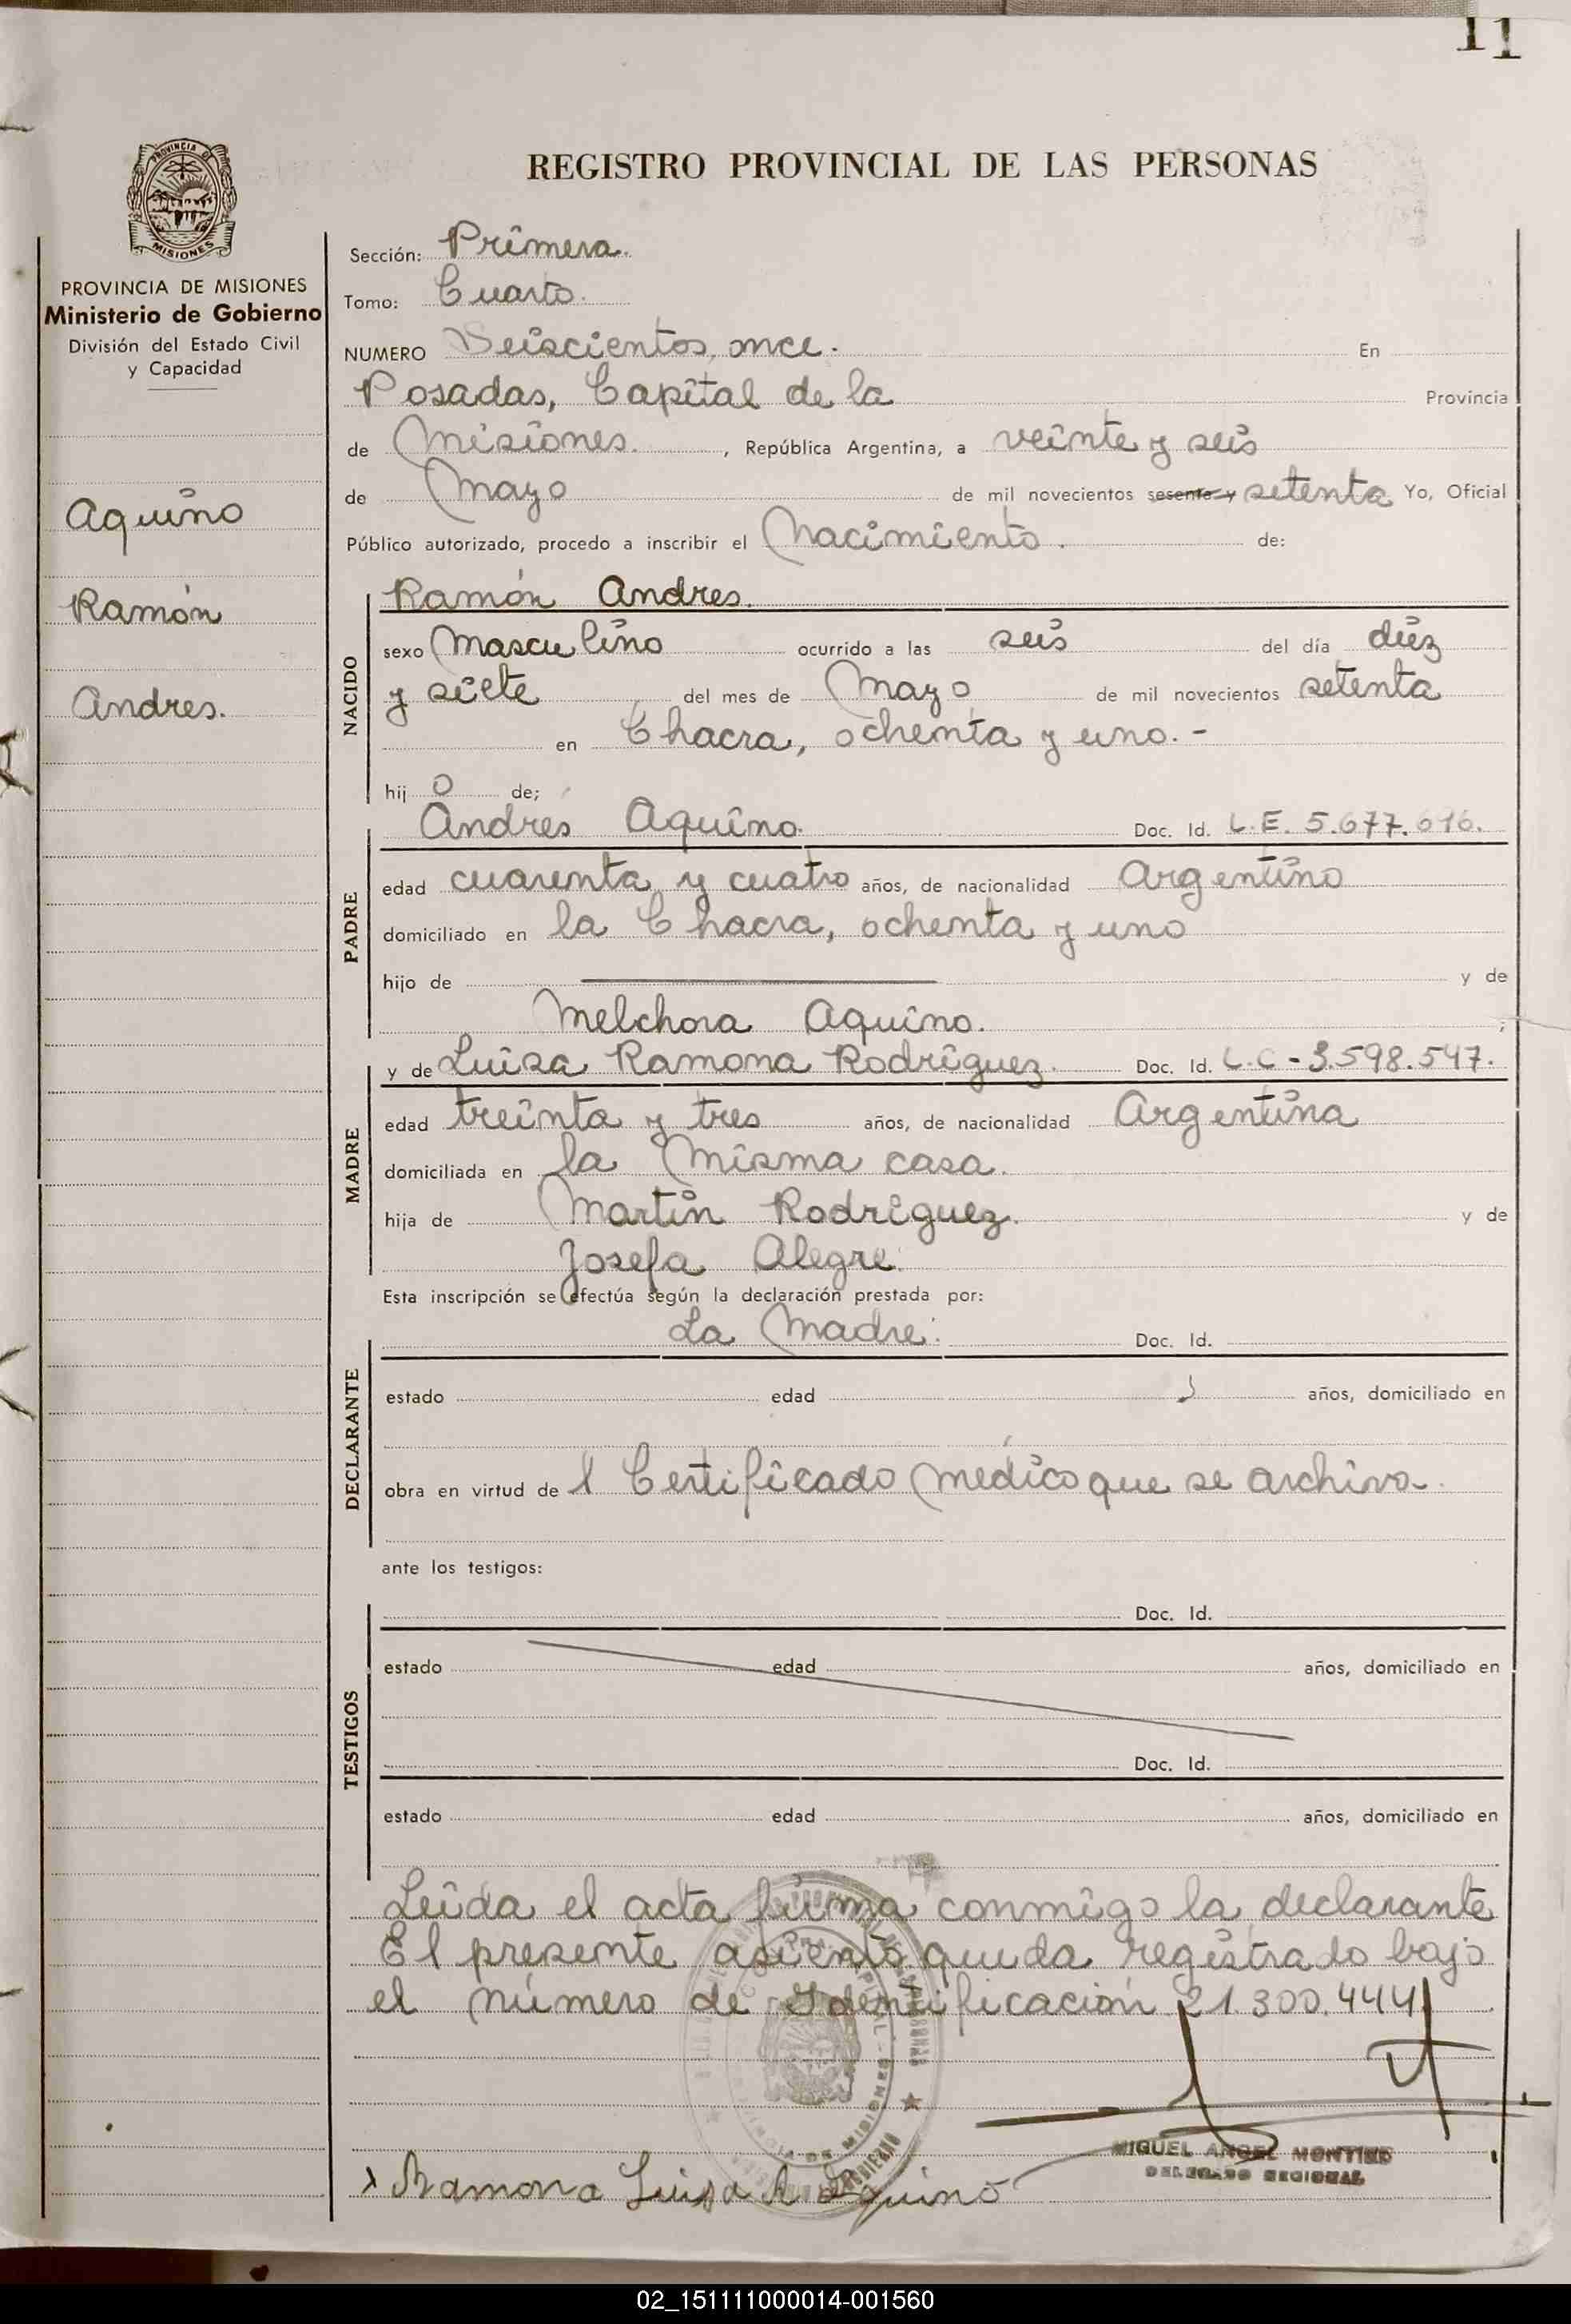 11
REGISTRO PROVINCIAL DE LAS PERSONAS
PROVINCIA DE
MISIONES
PROVINCIA DE MISIONES
Ministerio de Gobierno
División del Estado Civil
y Capacidad
Aquino
Ramón
Andres.
Sección: Primera.
Tomo: Cuarto.
NUMERO Seiscientos, once. En
Posadas, Capital de la Provincia
de Misiones. , República Argentina, a veinte y seis
de Mayo de mil novecientos sesenta y setenta Yo, Oficial
Público autorizado, procedo a inscribir el Nacimiento. de:
NACIDO
Ramón Andres.
sexo Masculino ocurrido a las seis del día diez
y siete del mes de Mayo de mil novecientos setenta
en Chacra, ochenta y uno. -
hij o de;
PADRE
Andrés Aquino. Doc. Id. L.E. 5.677.616.
edad cuarenta y cuatro años, de nacionalidad Argentino
domiciliado en la Chacra, ochenta y uno
hijo de y de
Melchora Aquino. ;
MADRE
y de Luisa Ramona Rodríguez. Doc. Id. L.C - 3.598.547.
edad treinta y tres años, de nacionalidad Argentina
domiciliada en la Misma casa.
hija de Martin Rodríguez. y de
Josefa Alegre.
Esta inscripción se efectúa según la declaración prestada por:
DECLARANTE
La Madre. Doc. Id.
estado edad años, domiciliado en
obra en virtud de l Certificado medico que se archiva.
ante los testigos:
TESTIGOS
Doc. Id.
estado edad años, domiciliado en
Doc. Id.
estado edad años, domiciliado en
Leida el acta firma conmigo la declarante
El presente asiento queda registrado bajo
el número de Identificación 21.300.444
MIGUEL ANGEL MONTIEL
DELEGADO REGIONAL
Ramona Luisa R Aquino
02_151111000014-001560